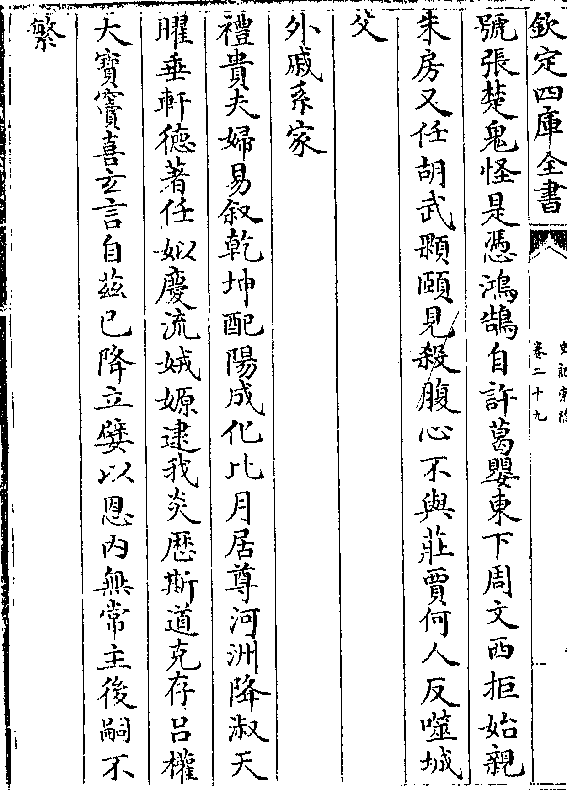 欽定四庫全書
史記索隱
卷二十九
號張楚鬼怪是憑鴻鵠自許葛嬰東下周文西拒始親
朱房又任胡武顆頤見殺腹心不與莊賈何人反噬城
父
外戚系家
禮貴夫婦易叙乾坤配陽成化比月居尊河洲降淑天
曜垂軒德著任姒慶流娀嫄逮我炎歴斯道克存吕權
大寳竇喜玄言自兹已降立嬖以恩内無常主後嗣不
繁